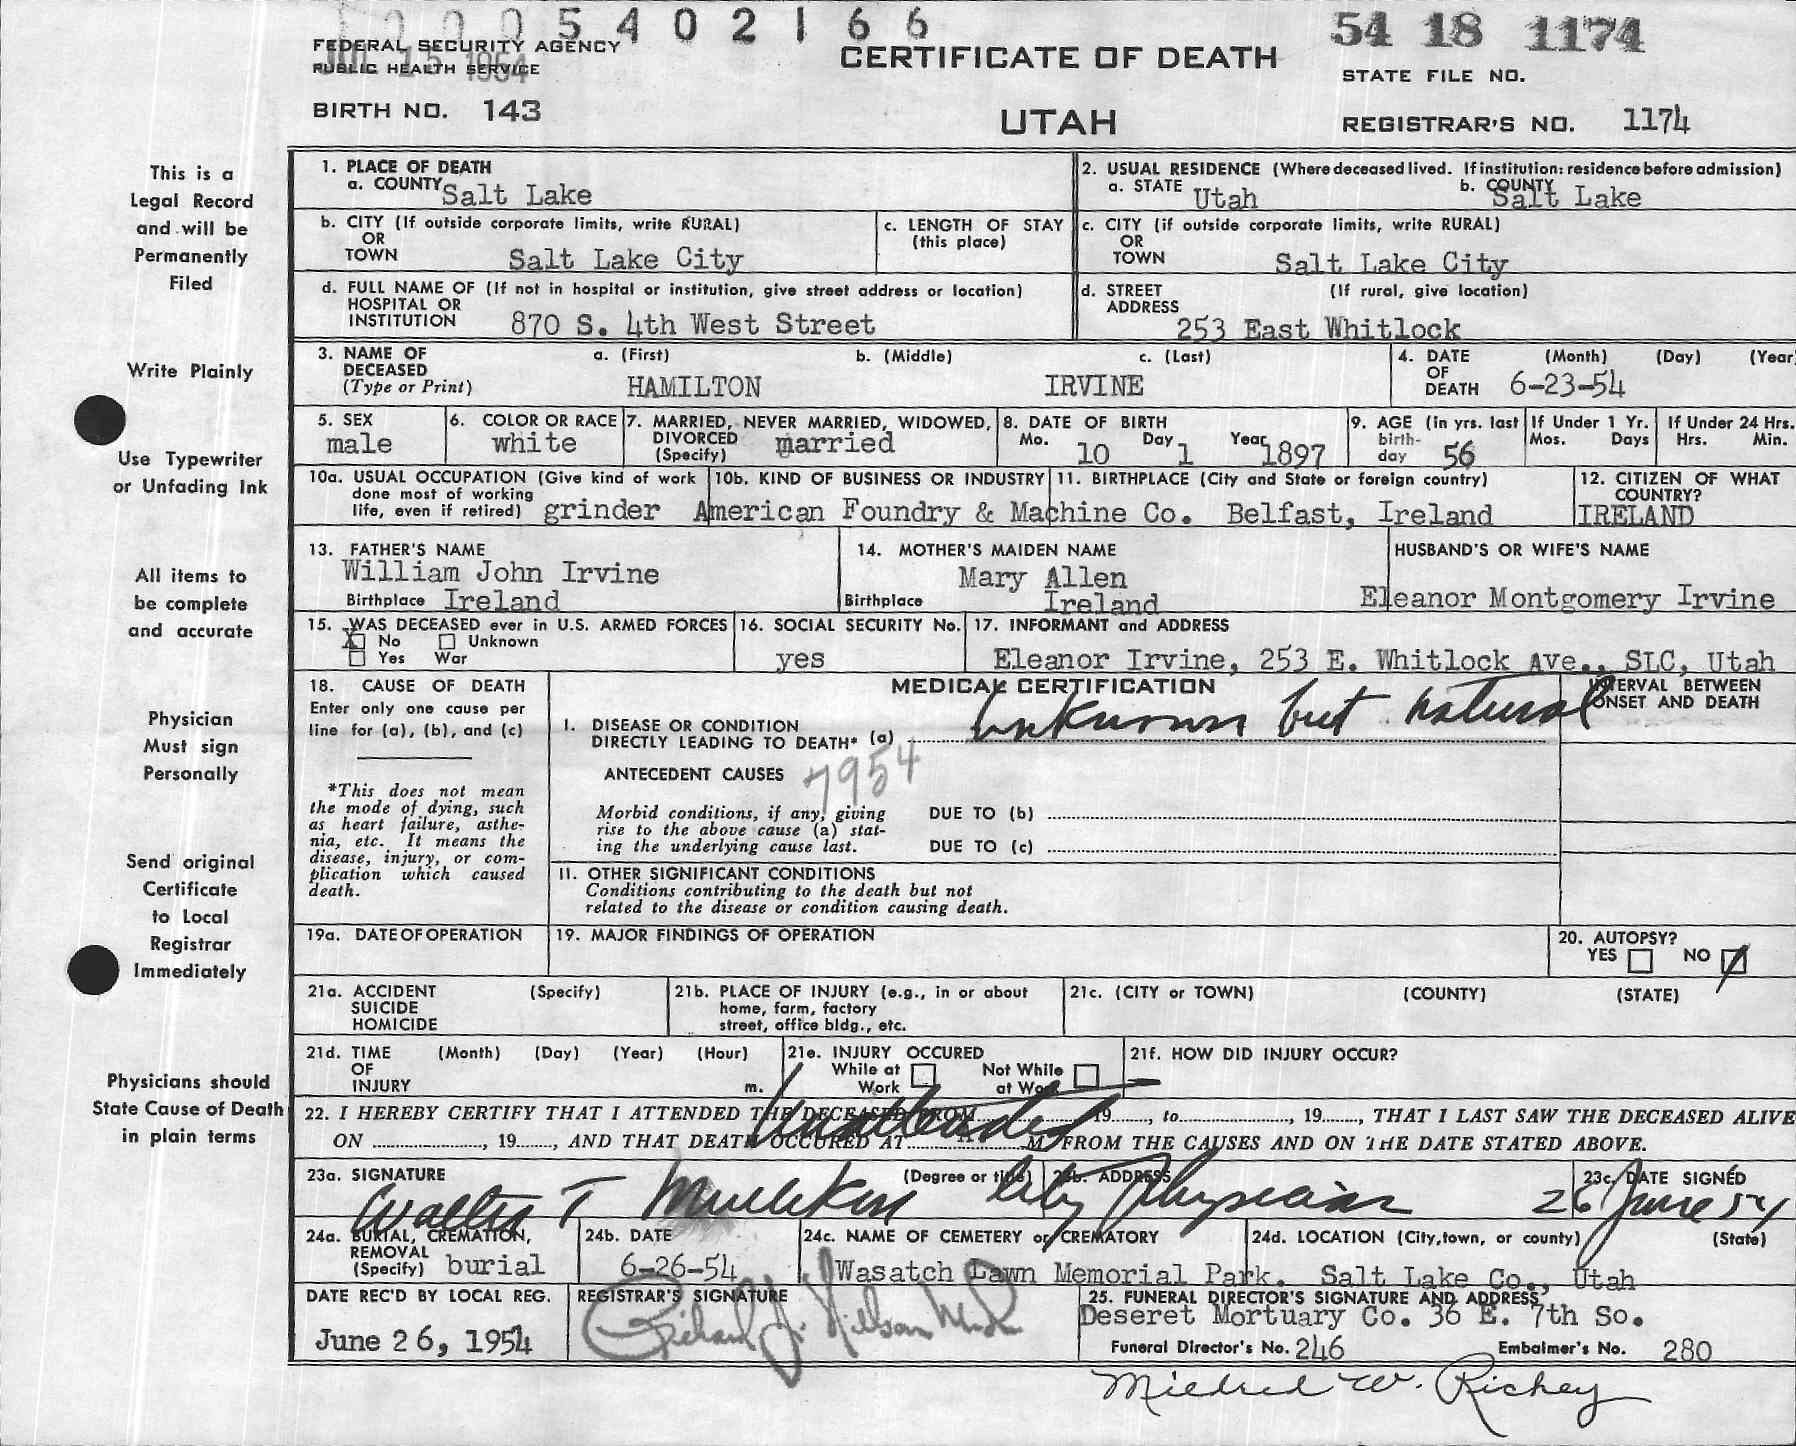 0005402166
54 18 1174
FEDERAL SECURITY AGENCY
PUBLIC HEALTH SERVICE
JUL 15 1954
CERTIFICATE OF DEATH
STATE FILE NO.
BIRTH NO. 143
UTAH
REGISTRAR'S NO. 1174
This is a
Legal Record
and will be
Permanently
Filed
Write Plainly
Use Typewriter
or Unfading Ink
All items to
be complete
and accurate
Physician
Must sign
Personally
Send original
Certificate
to Local
Registrar
Immediately
Physicians should
State Cause of Death
in plain terms
1. PLACE OF DEATH
a. COUNTY Salt Lake
2. USUAL RESIDENCE (Where deceased lived. If institution: residence before admission)
a. STATE Utah b. COUNTY Salt Lake
b. CITY (If outside corporate limits, write RURAL)
OR
TOWN Salt Lake City
c. LENGTH OF STAY
(this place)
c. CITY (if outside corporate limits, write RURAL)
OR
TOWN Salt Lake City
d. FULL NAME OF (If not in hospital or institution, give street address or location)
HOSPITAL OR
INSTITUTION 870 S. 4th West Street
d. STREET (If rural, give location)
ADDRESS
253 East Whitlock
3. NAME OF a. (First) b. (Middle) c. (Last)
DECEASED
(Type or Print) HAMILTON IRVINE
4. DATE (Month) (Day) (Year
OF
DEATH 6-23-54
5. SEX
male
6. COLOR OR RACE
white
7. MARRIED, NEVER MARRIED, WIDOWED,
DIVORCED married
(Specify)
8. DATE OF BIRTH
Mo. 10 Day 1 Year 1897
9. AGE (in yrs. last
birth-
day 56
If Under 1 Yr.
Mos. Days
If Under 24 Hrs.
Hrs. Min.
10a. USUAL OCCUPATION (Give kind of work
done most of working
life, even if retired) grinder
10b. KIND OF BUSINESS OR INDUSTRY
American Foundry & Machine Co.
11. BIRTHPLACE (City and State or foreign country)
Belfast, Ireland
12. CITIZEN OF WHAT
COUNTRY?
IRELAND
13. FATHER'S NAME
William John Irvine
Birthplace Ireland
14. MOTHER'S MAIDEN NAME
Mary Allen
Birthplace Ireland
HUSBAND'S OR WIFE'S NAME
Eleanor Montgomery Irvine
15. WAS DECEASED ever in U.S. ARMED FORCES
X No Unknown
Yes War
16. SOCIAL SECURITY No.
yes
17. INFORMANT and ADDRESS
Eleanor Irvine, 253 E. Whitlock Ave., SLC, Utah
18. CAUSE OF DEATH
Enter only one cause per
line for (a), (b), and (c)
*This does not mean
the mode of dying, such
as heart failure, asthe-
nia, etc. It means the
disease, injury, or com-
plication which caused
death.
MEDICAL CERTIFICATION
INTERVAL BETWEEN
ONSET AND DEATH
I. DISEASE OR CONDITION
DIRECTLY LEADING TO DEATH* (a) Unknown but natural
ANTECEDENT CAUSES 7954
Morbid conditions, if any, giving
rise to the above cause (a) stat-
ing the underlying cause last.
DUE TO (b)
DUE TO (c)
II. OTHER SIGNIFICANT CONDITIONS
Conditions contributing to the death but not
related to the disease or condition causing death.
19a. DATE OF OPERATION
19. MAJOR FINDINGS OF OPERATION
20. AUTOPSY?
YES NO
21a. ACCIDENT (Specify)
SUICIDE
HOMICIDE
21b. PLACE OF INJURY (e.g., in or about
home, farm, factory
street, office bldg., etc.
21c. (CITY or TOWN) (COUNTY) (STATE)
21d. TIME (Month) (Day) (Year) (Hour)
OF
INJURY m.
21e. INJURY OCCURED
While at Work Not While at Work
21f. HOW DID INJURY OCCUR?
Unattended
22. I HEREBY CERTIFY THAT I ATTENDED THE DECEASED FROM 19, to , 19, THAT I LAST SAW THE DECEASED ALIVE
ON , 19, AND THAT DEATH OCCURED AT M FROM THE CAUSES AND ON THE DATE STATED ABOVE.
23a. SIGNATURE (Degree or title)
23b. ADDRESS
23c. DATE SIGNED
Walter T City Physician 26 June 54
24a. BURIAL, CREMATION,
REMOVAL
(Specify) burial
24b. DATE
6-26-54
24c. NAME OF CEMETERY or CREMATORY
Wasatch Lawn Memorial Park.
24d. LOCATION (City, town, or county) (State)
Salt Lake Co., Utah
DATE REC'D BY LOCAL REG.
June 26, 1954
REGISTRAR'S SIGNATURE
Richard J. Nelson M.D.
25. FUNERAL DIRECTOR'S SIGNATURE AND ADDRESS,
Deseret Mortuary Co. 36 E. 7th So.
Funeral Director's No. 246 Embalmer's No. 280
Mildred W. Richey